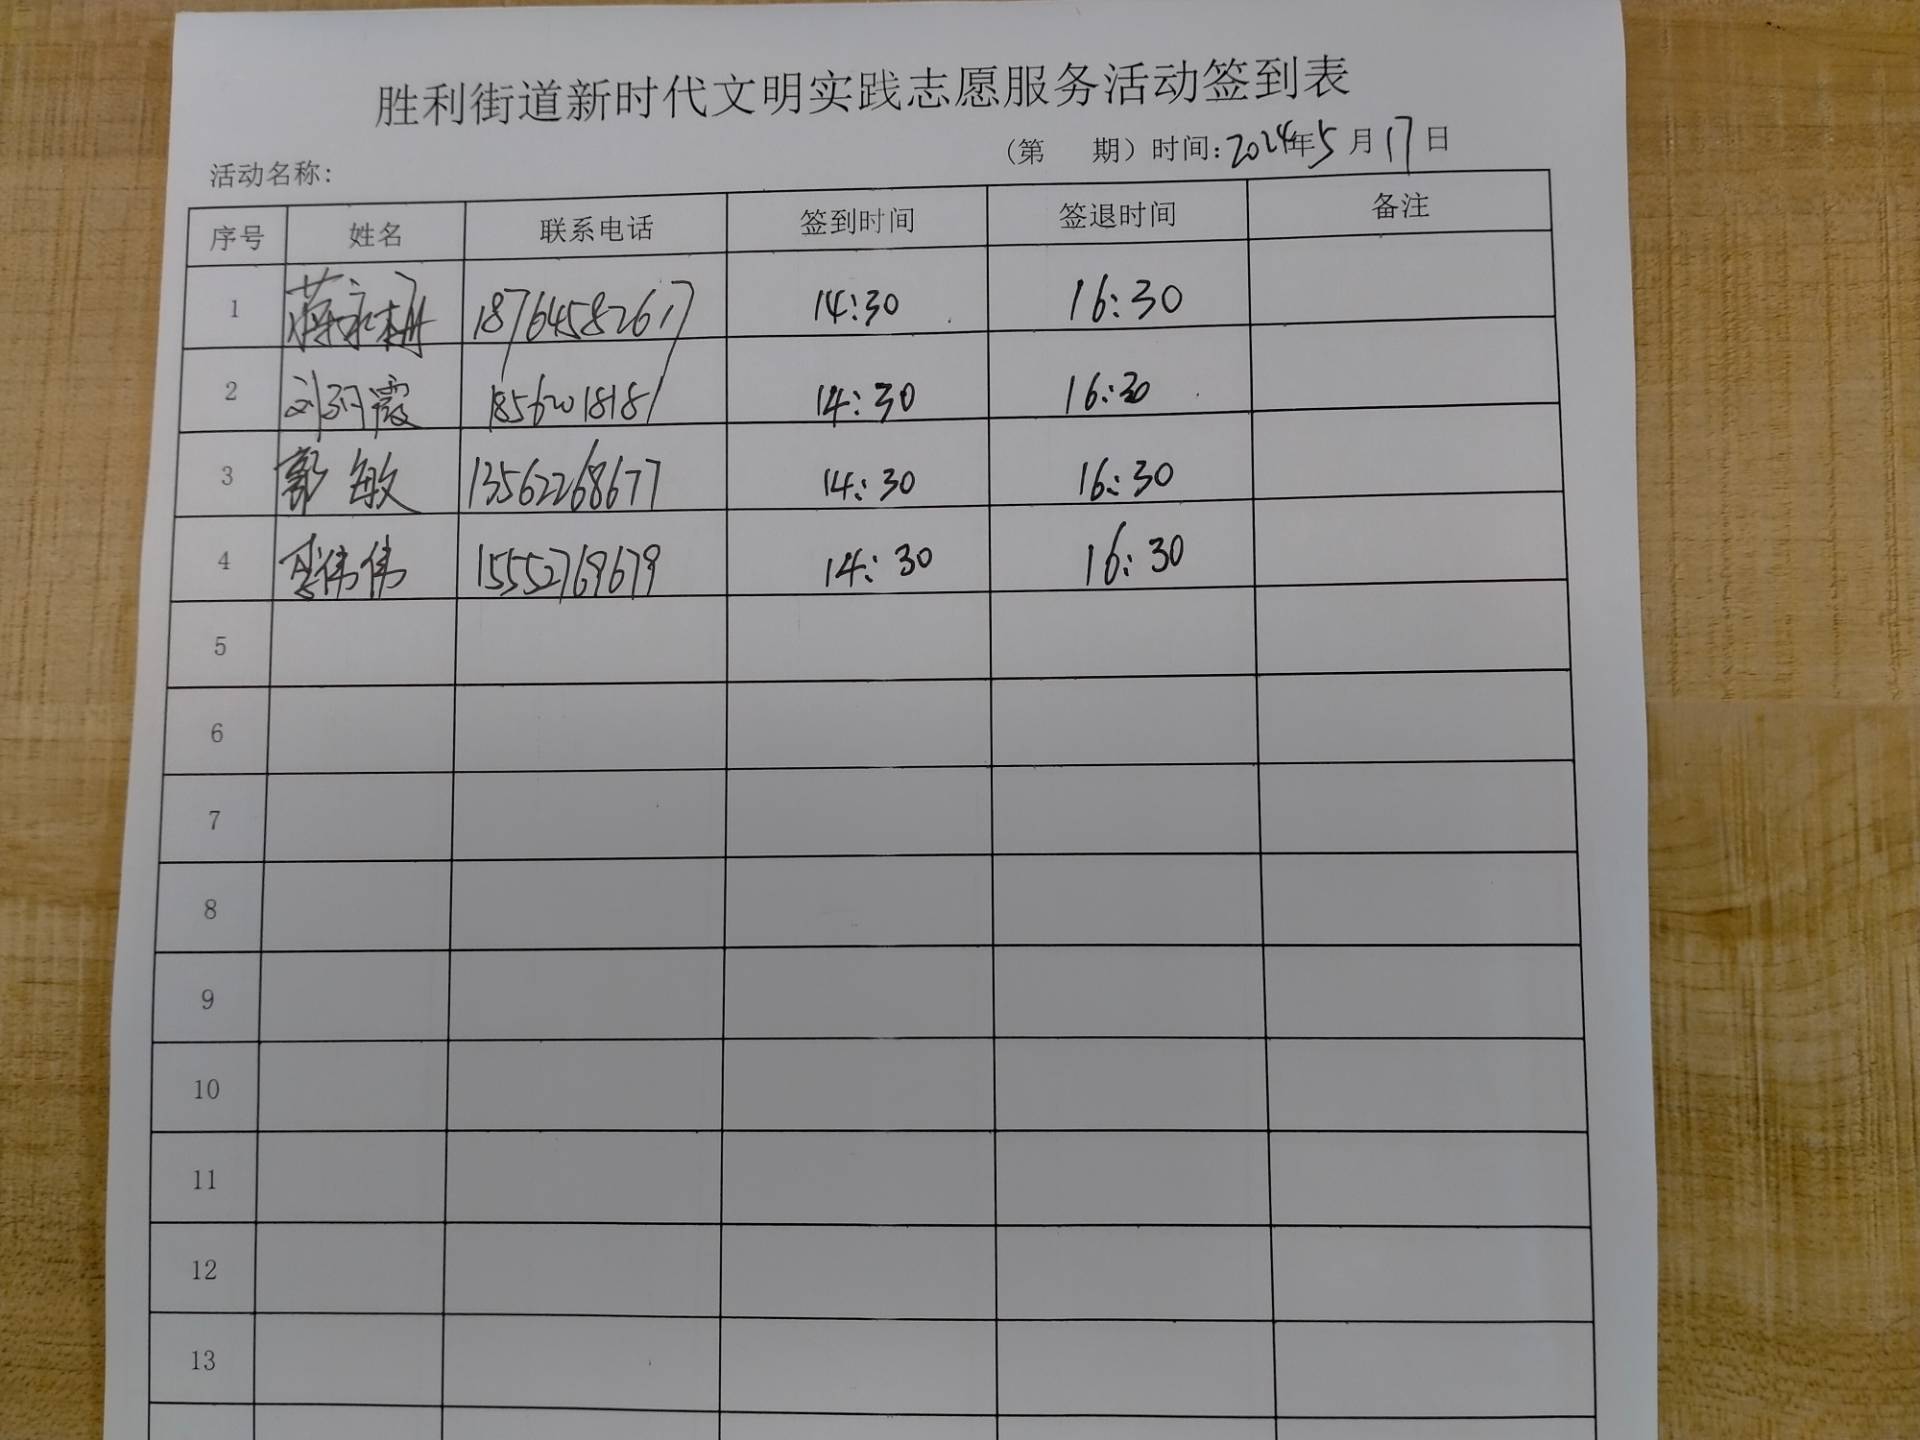 胜利街道新时代文明实践志愿服务活动签到表
(第 期）时间:2024年5月17日
活动名称:
序号 姓名 联系电话 签到时间 签退时间 备注
1 蒋永 18764582617 14:30 16:30
2 刘 霞 18562018181 14:30 16:30
3 郭敏 13562268677 14:30 16:30
4 李伟伟 15552769679 14:30 16:30
5
6
7
8
9
10
11
12
13